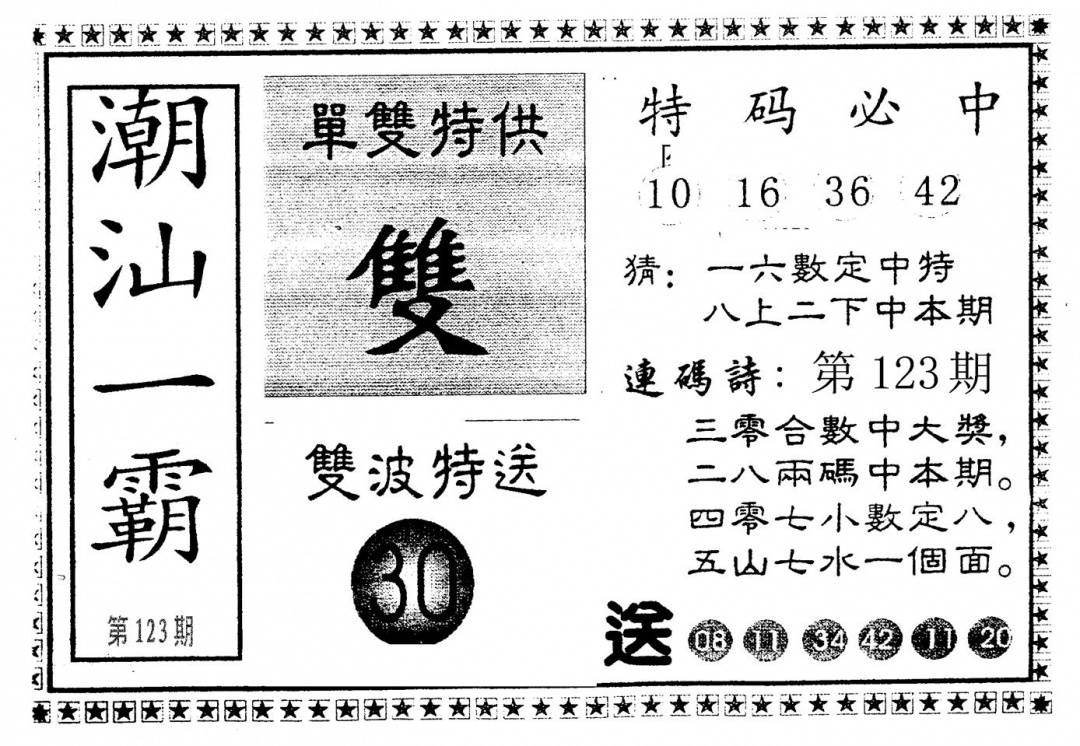 潮汕一霸
第123期
單雙特供
雙
雙波特送
30
特码必中
10 16 36 42
猜：一六數定中特
八上二下中本期
連碼詩：第123期
三零合數中大獎，
二八兩碼中本期。
四零七小數定八，
五山七水一個面。
送 08 11 34 42 11 20